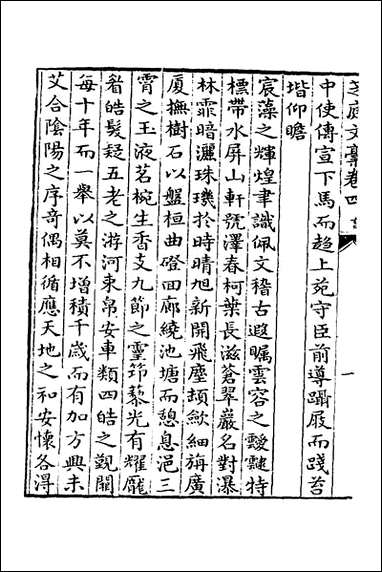 芝庭文藁卷四
一
中使傳宣下馬而趨上苑守臣前導躡屐而踐苔
堦仰瞻
宸藻之輝煌聿識佩文稽古遐矚雲容之靉靆特
標帶水屏山軒號澤春柯葉長滋蒼翠巖名對瀑
林霏暗灑珠璣於時晴旭新開飛塵頓歛細旃廣
厦撫樹石以盤桓曲磴四廊繞池塘而憩息浥三
霄之玉液茗椀生香支九節之靈筇藜光有耀龎
眉皓髮疑五老之游河東帛安車類四皓之覲闕
每十年而一舉以莫不增積千歲而有加方興未
艾合陰陽之序奇偶相循應天地之和安懷各得